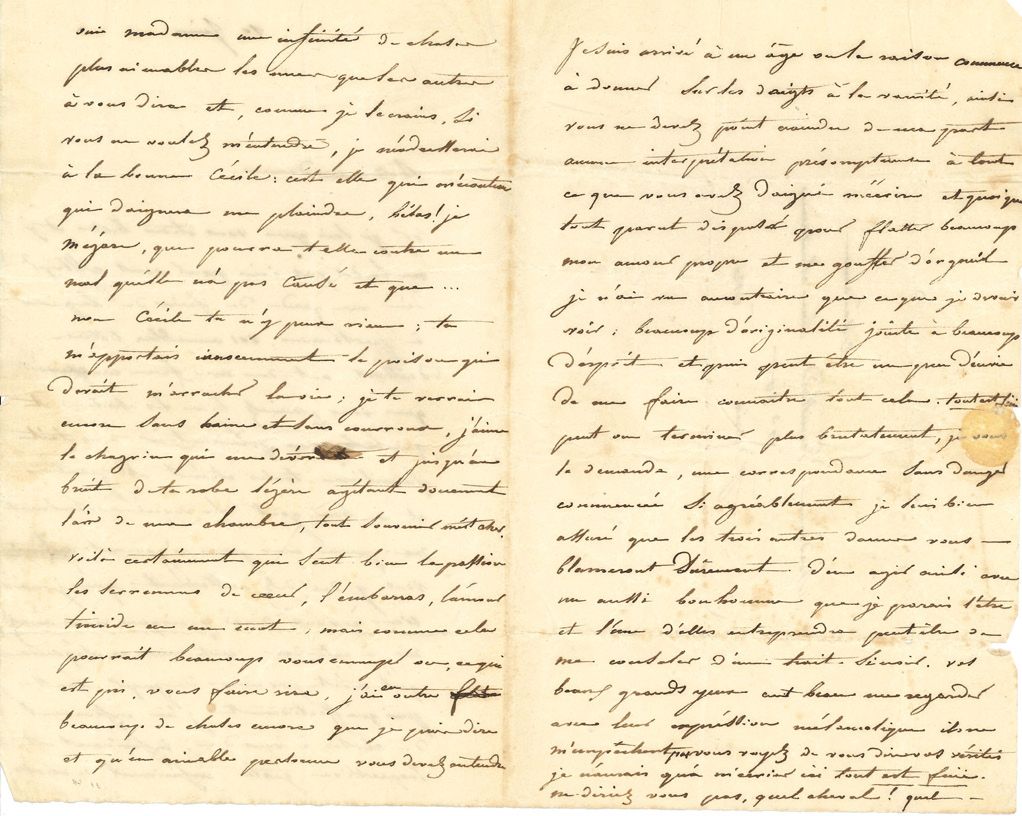 vrai madame une infinité de choses
plus aimables les unes que les autres
à vous dire et, comme je le crains, si
vous ne voulez m'entendre, je m'adresserai
à la bonne Cécile : c'est elle qui m'écoutera
qui daignera me plaindre, hélas! je
m'égare, que pourra t'elle contre un
mal qu'elle n'a pas causé et que ...
non Cécile tu n'y peux rien ; tu
m'apportais innocemment le poison qui
devait m'arracher la vie ; je te verrai
encore sans haine et sans courroux, j'aime
le chagrin qui me dévore et jusqu'au
bruit de ta robe légère agitant doucement
l'air de ma chambre, tout souvenir m'est cher.
voilà certainement qui sent bien la passion
les serremens de cœur, l'embarras, l'amour
timide en un mot ; mais comme cela
pourrait beaucoup vous ennuyer ou, ce qui
est pis, vous faire rire, j'ai en outre
beaucoup de choses encore que je puis dire
et qu'en aimable personne vous devez entendre
Je suis arrivé à un âge où la raison commence
à donner sur les doigts à la vanité, ainsi
vous ne devez point craindre de ma part
aucune interprétation présomptueuse à tout
ce que vous avez daigné m'écrire et quoique
tout parut disposé pour flatter beaucoup
mon amour propre et me gonfler d'orgueil
je n'ai vu au contraire que ce que je devais
voir : beaucoup d'originalité jointe à beaucoup
d'esprit et puis peut être un peu d'envie
de me faire connaitre tout cela. tout est fini
peut on terminer plus brutalement, je vous
le demande, une correspondance sans danger
commencée si agréablement je suis bien
assuré que les trois autres dames vous
blameront durement d'en agir ainsi avec
un aussi bonhomme que je parais l'être
et l'une d'elles entreprendra peut être de
me consoler d'un trait si noir. vos
beaux grands yeux ont beau me regarder
avec leur expréssion mélancolique ils ne
m'empêchent pas vous voyez de vous dire vos vérités
je n'aurais qu'à m'écrier ici tout est fini.
me diriez vous pas, quel cheval! quel